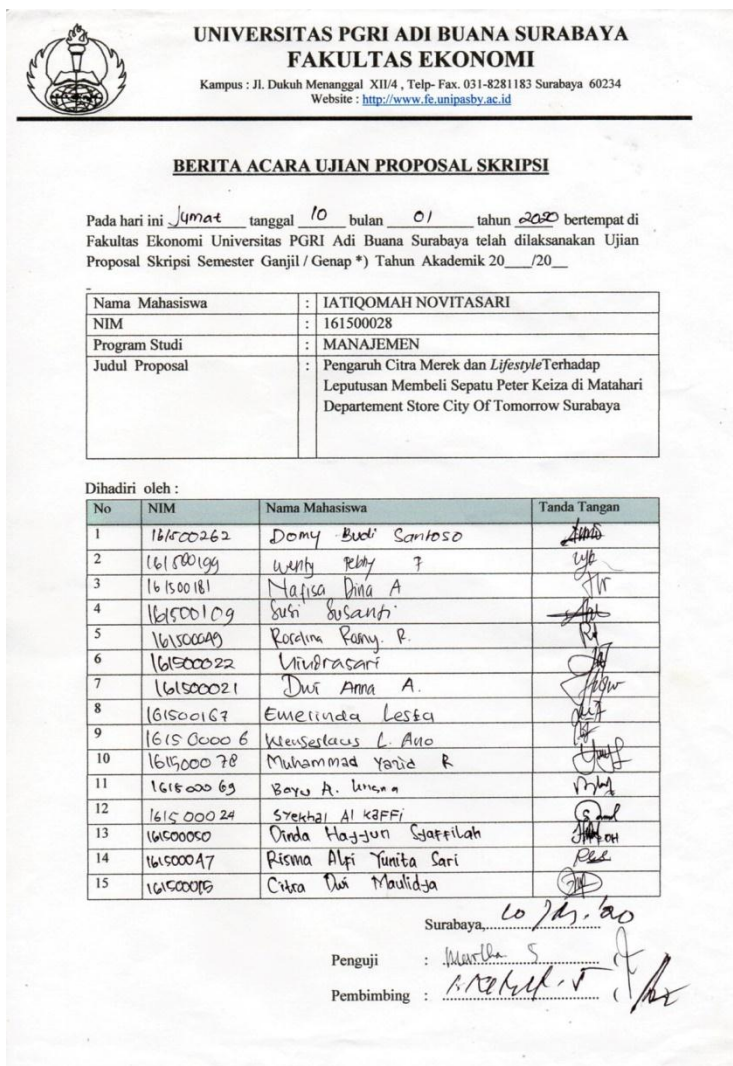 UNIVERSITAS PGRI ADI BUANA SURABAYA
FAKULTAS EKONOMI
Kampus : Jl. Dukuh Menanggal XII/4 , Telp- Fax. 031-8281183 Surabaya 60234
Website : http://www.fe.unipasby.ac.id
BERITA ACARA UJIAN PROPOSAL SKRIPSI
Pada hari ini Jumat tanggal 10 bulan 01 tahun 2020 bertempat di
Fakultas Ekonomi Universitas PGRI Adi Buana Surabaya telah dilaksanakan Ujian
Proposal Skripsi Semester Ganjil / Genap *) Tahun Akademik 20___/20__
Nama Mahasiswa : IATIQOMAH NOVITASARI
NIM : 161500028
Program Studi : MANAJEMEN
Judul Proposal : Pengaruh Citra Merek dan LifestyleTerhadap
Leputusan Membeli Sepatu Peter Keiza di Matahari
Departement Store City Of Tomorrow Surabaya
Dihadiri oleh :
No NIM Nama Mahasiswa Tanda Tangan
1 161500262 Domy Budi Santoso
2 161500199 Wenty Febby F
3 161500181 Nafisa Dina A
4 161500109 Susi Susanti
5 161500049 Rosdina Ramy. R.
6 161500022 Windrasari
7 161500021 Dwi Anna A.
8 161500167 Emerinda Lesta
9 161500006 Wenseslaus L. Ano
10 161500078 Muhammad Yazid R
11 161500069 Bayu A.
12 161500024 Syekhal Al Kaffi
13 161500050 Dinda Hayyun Syaffilah
14 161500047 Risma Alfi Yunita Sari
15 161500015 Citra Dwi Maulidya
Surabaya, 10
Penguji :
Pembimbing :